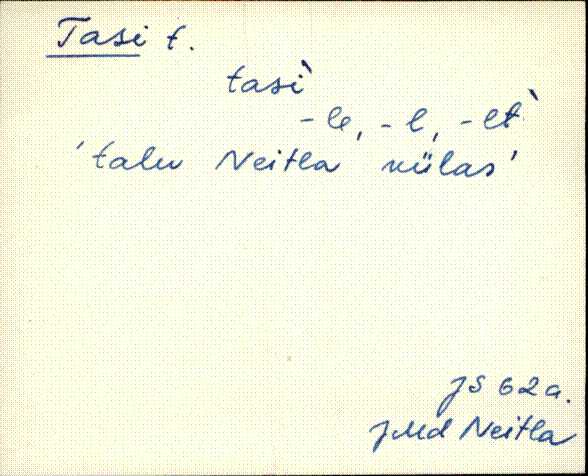 Tasi t.
tasì
-le, -l, -lt`
'talu Neitla külas'
JS 62a.
JMd Neitla